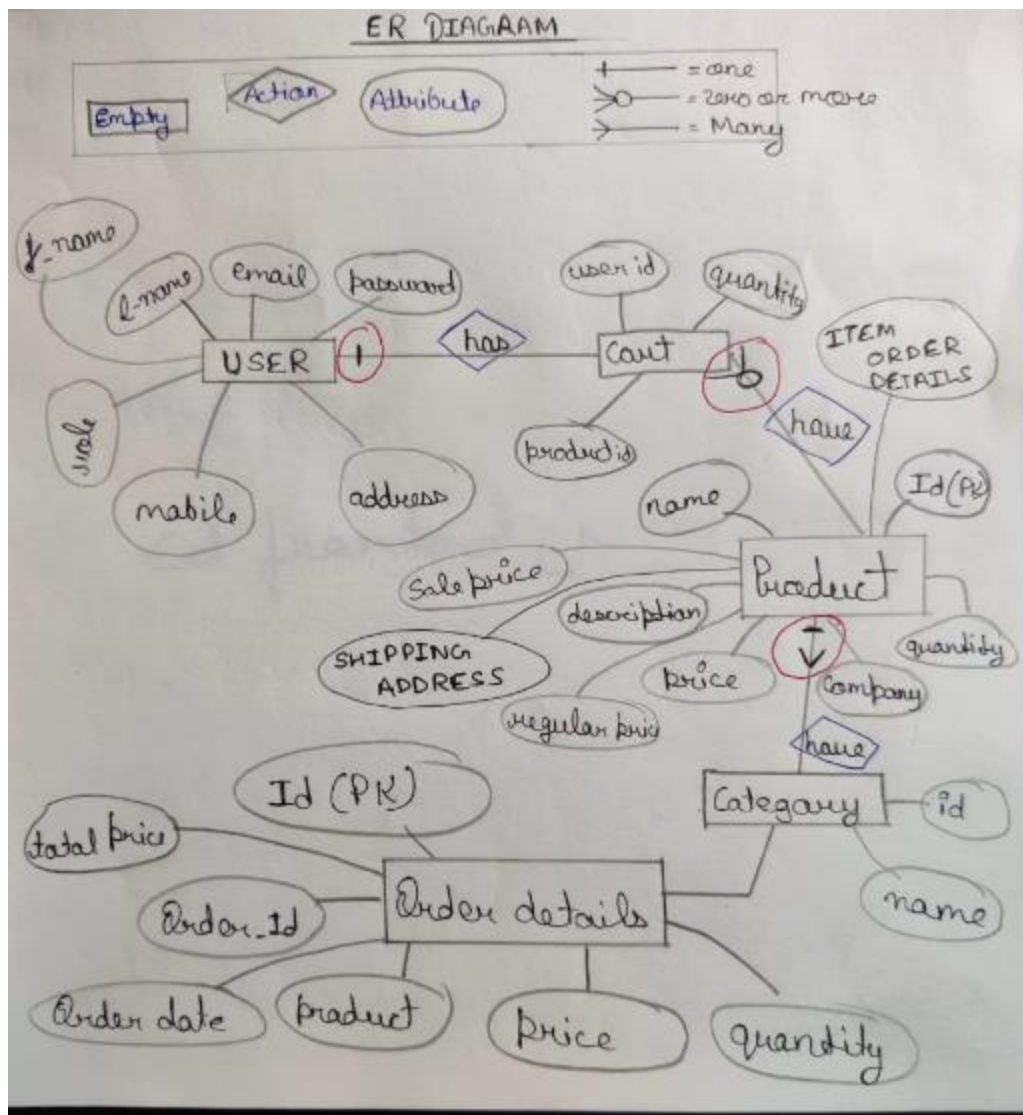 ER DIAGRAAM
Empty
Action
Attribute
= one
= zero or more
= Many
f_name
l-name
email
password
USER
has
role
mobile
address
user id
quantity
Cart
product id
have
ITEM
ORDER
DETAILS
name
Id (PK)
Product
sale price
description
SHIPPING
ADDRESS
regular pric
price
Company
quantity
have
Category
id
name
Id (PK)
total price
Order_Id
Order details
Order date
product
price
quantity